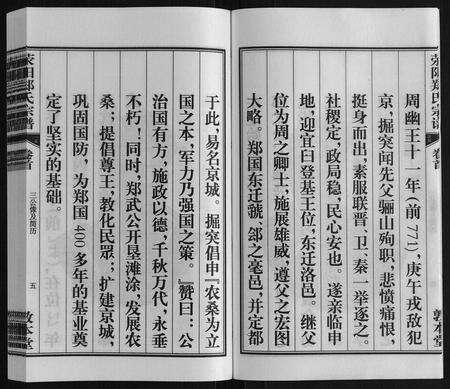 荥阳郑氏宗谱
卷首
敦本堂
周幽王十一年(前771),庚午戎敌犯
京,掘突闻先父骊山殉职,悲愤痛恨,
挺身而出,素服联晋、卫、秦一举逐之。
社稷定,政局稳,民心安也。遂亲临申
地,迎宜臼登基王位,东迁洛邑。继父
位为周之卿士,施展雄威,遵父之宏图
大略。郑国东迁虢郐之毫邑,并定都
于此,易名京城。掘突倡申『农桑为立
国之本,军力乃强国之策。』赞曰:公
治国有方,施政以德,千秋万代,永垂
不朽!同时,郑武公开垦滩涂,发展农
桑;提倡尊王,教化民眾;扩建京城,
巩固国防,为郑国400多年的基业奠
定了坚实的基础。
荥阳郑氏宗谱
卷首
三公像及简历
五
敦本堂